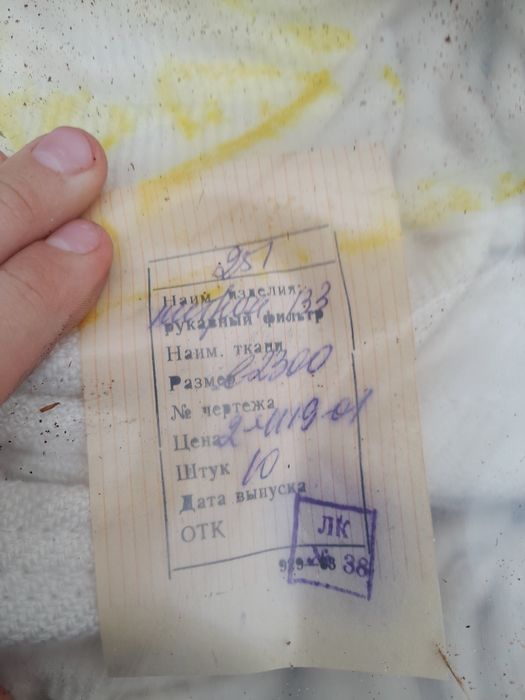 251
Наим. изделия:
133
рукавный фильтр
Наим. ткани
Размер 2300
№ чертежа
Цена
Штук 10
Дата выпуска
ОТК
ЛК
№ 38